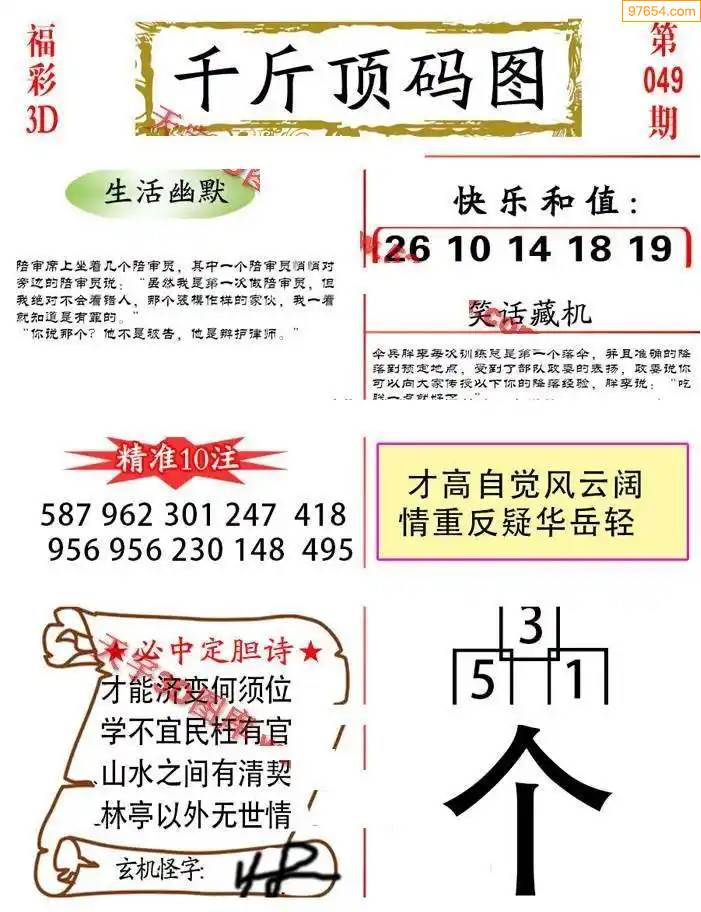 97654.com
福彩3D
千斤顶码图
第049期
生活幽默
陪审席上坐着几个陪审员，其中一个陪审员悄悄对
旁边的陪审员说：“虽然我是第一次做陪审员，但
我绝对不会看错人，那个装模作样的家伙，我一看
就知道是有罪的。”
“你说那个？他不是被告，他是辩护律师。”
快乐和值：
26 10 14 18 19
笑话藏机
伞兵胖李每次训练总是第一个落伞，并且准确的降
落到预定地点，受到了部队政委的表扬，政委说你
可以向大家传授以下你的降落经验，胖李说：“吃
胖一点就好了
精准10注
587 962 301 247 418
956 956 230 148 495
才高自觉风云阔
情重反疑华岳轻
★必中定胆诗★
才能济变何须位
学不宜民枉有官
山水之间有清契
林亭以外无世情
玄机怪字:
3
5 1
个